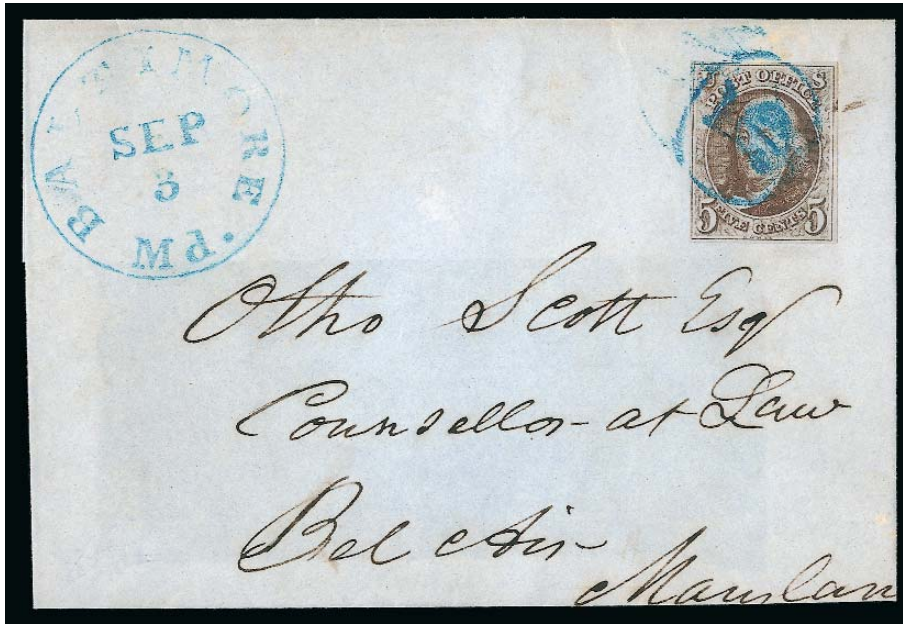 BALTIMORE Md.
SEP
3
U S
POST OFFICE
5 FIVE CENTS 5
Otho Scott Esq
Counsellor at Law
Bel Air
Marylan